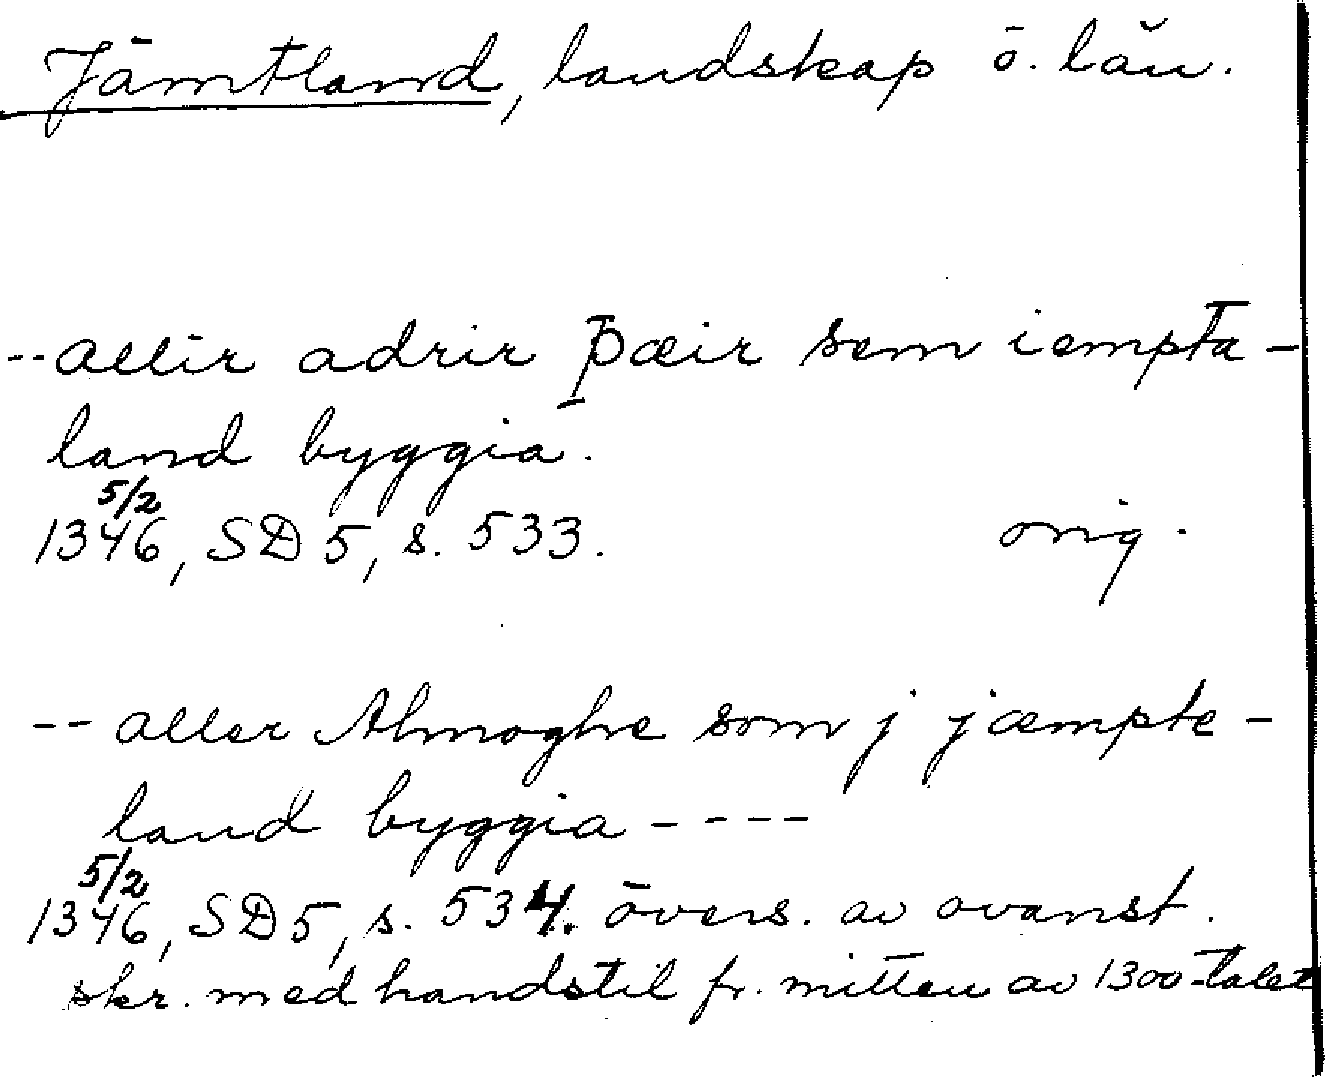 Jämtland, landskap o. län.
-- allir adrir þæir sem iempta-
land byggia.
5/2
1346, SD 5, s. 533. orig.
-- aller Almoghe som j jæmpte-
land byggia ----
5/2
1346, SD 5, s. 534. övers. av ovanst.
skr. med handstil fr. mitten av 1300-talet